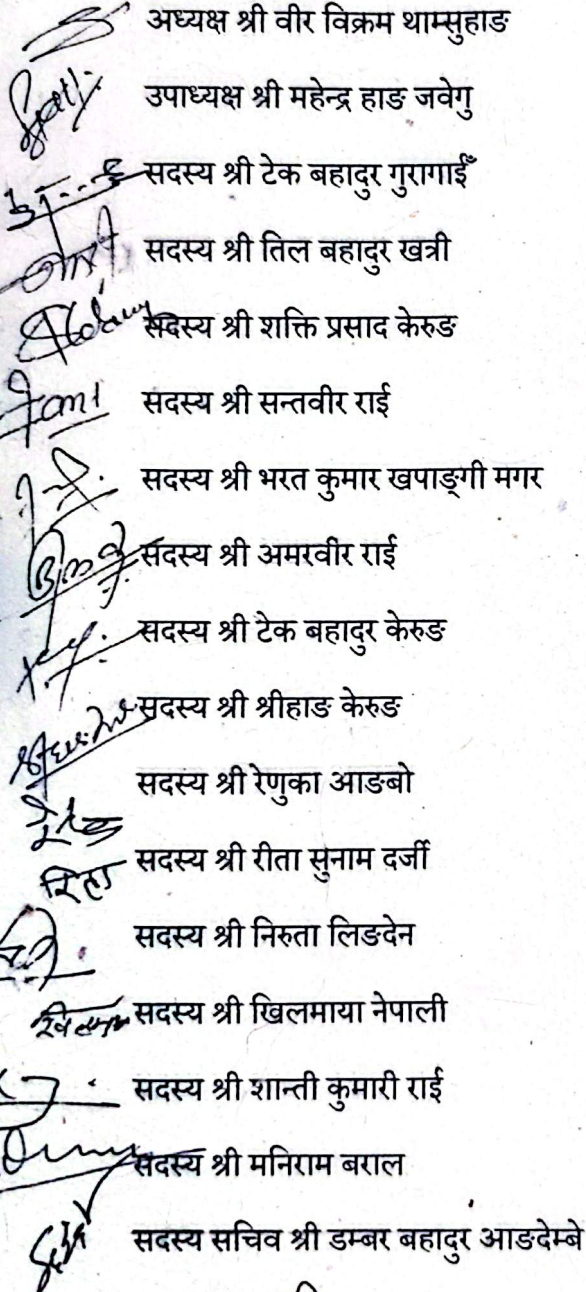 अध्यक्ष श्री वीर विक्रम थाम्सुहाङ
उपाध्यक्ष श्री महेन्द्र हाङ जवेगु
सदस्य श्री टेक बहादुर गुरागाईँ
सदस्य श्री तिल बहादुर खत्री
सदस्य श्री शक्ति प्रसाद केरुङ
सदस्य श्री सन्तवीर राई
सदस्य श्री भरत कुमार खपाङ्गी मगर
सदस्य श्री अमरवीर राई
सदस्य श्री टेक बहादुर केरुङ
सदस्य श्री श्रीहाङ केरुङ
सदस्य श्री रेणुका आङबो
रिता सदस्य श्री रीता सुनाम दर्जी
सदस्य श्री निरुता लिङदेन
सदस्य श्री खिलमाया नेपाली
सदस्य श्री शान्ती कुमारी राई
सदस्य श्री मनिराम बराल
सदस्य सचिव श्री डम्बर बहादुर आङदेम्बे